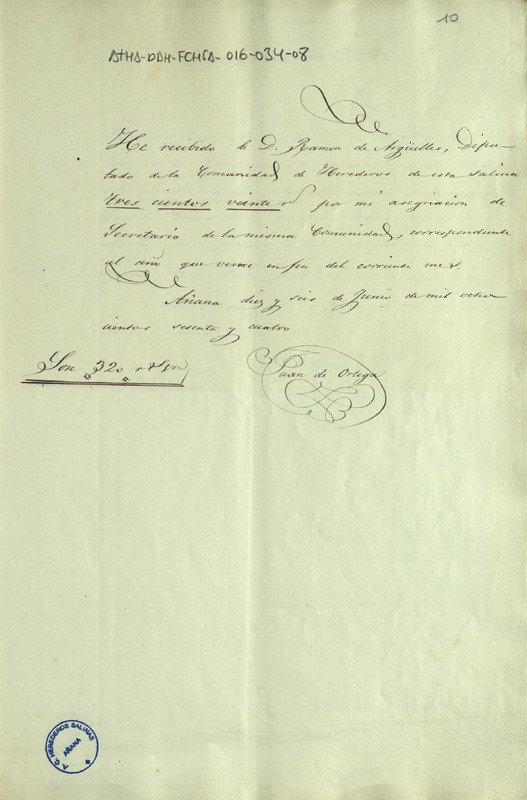 10
ATHA-DAH-FCHSA-016-034-08
He recibido de D. Ramon de Argüelles, Dipu-
tado de la Comunidad de Herederos de esta salina
tres cientos veinte rs por mi asignacion de
Secretario de la misma Comunidad, correspondiente
al año que vence en fin del corriente mes.
Añana diez y seis de Junio de mil ocho
cientos sesenta y cuatro
Son 320 rs von
Juan de Ortega
A. Q. HEREDEROS SALINAS
AÑANA